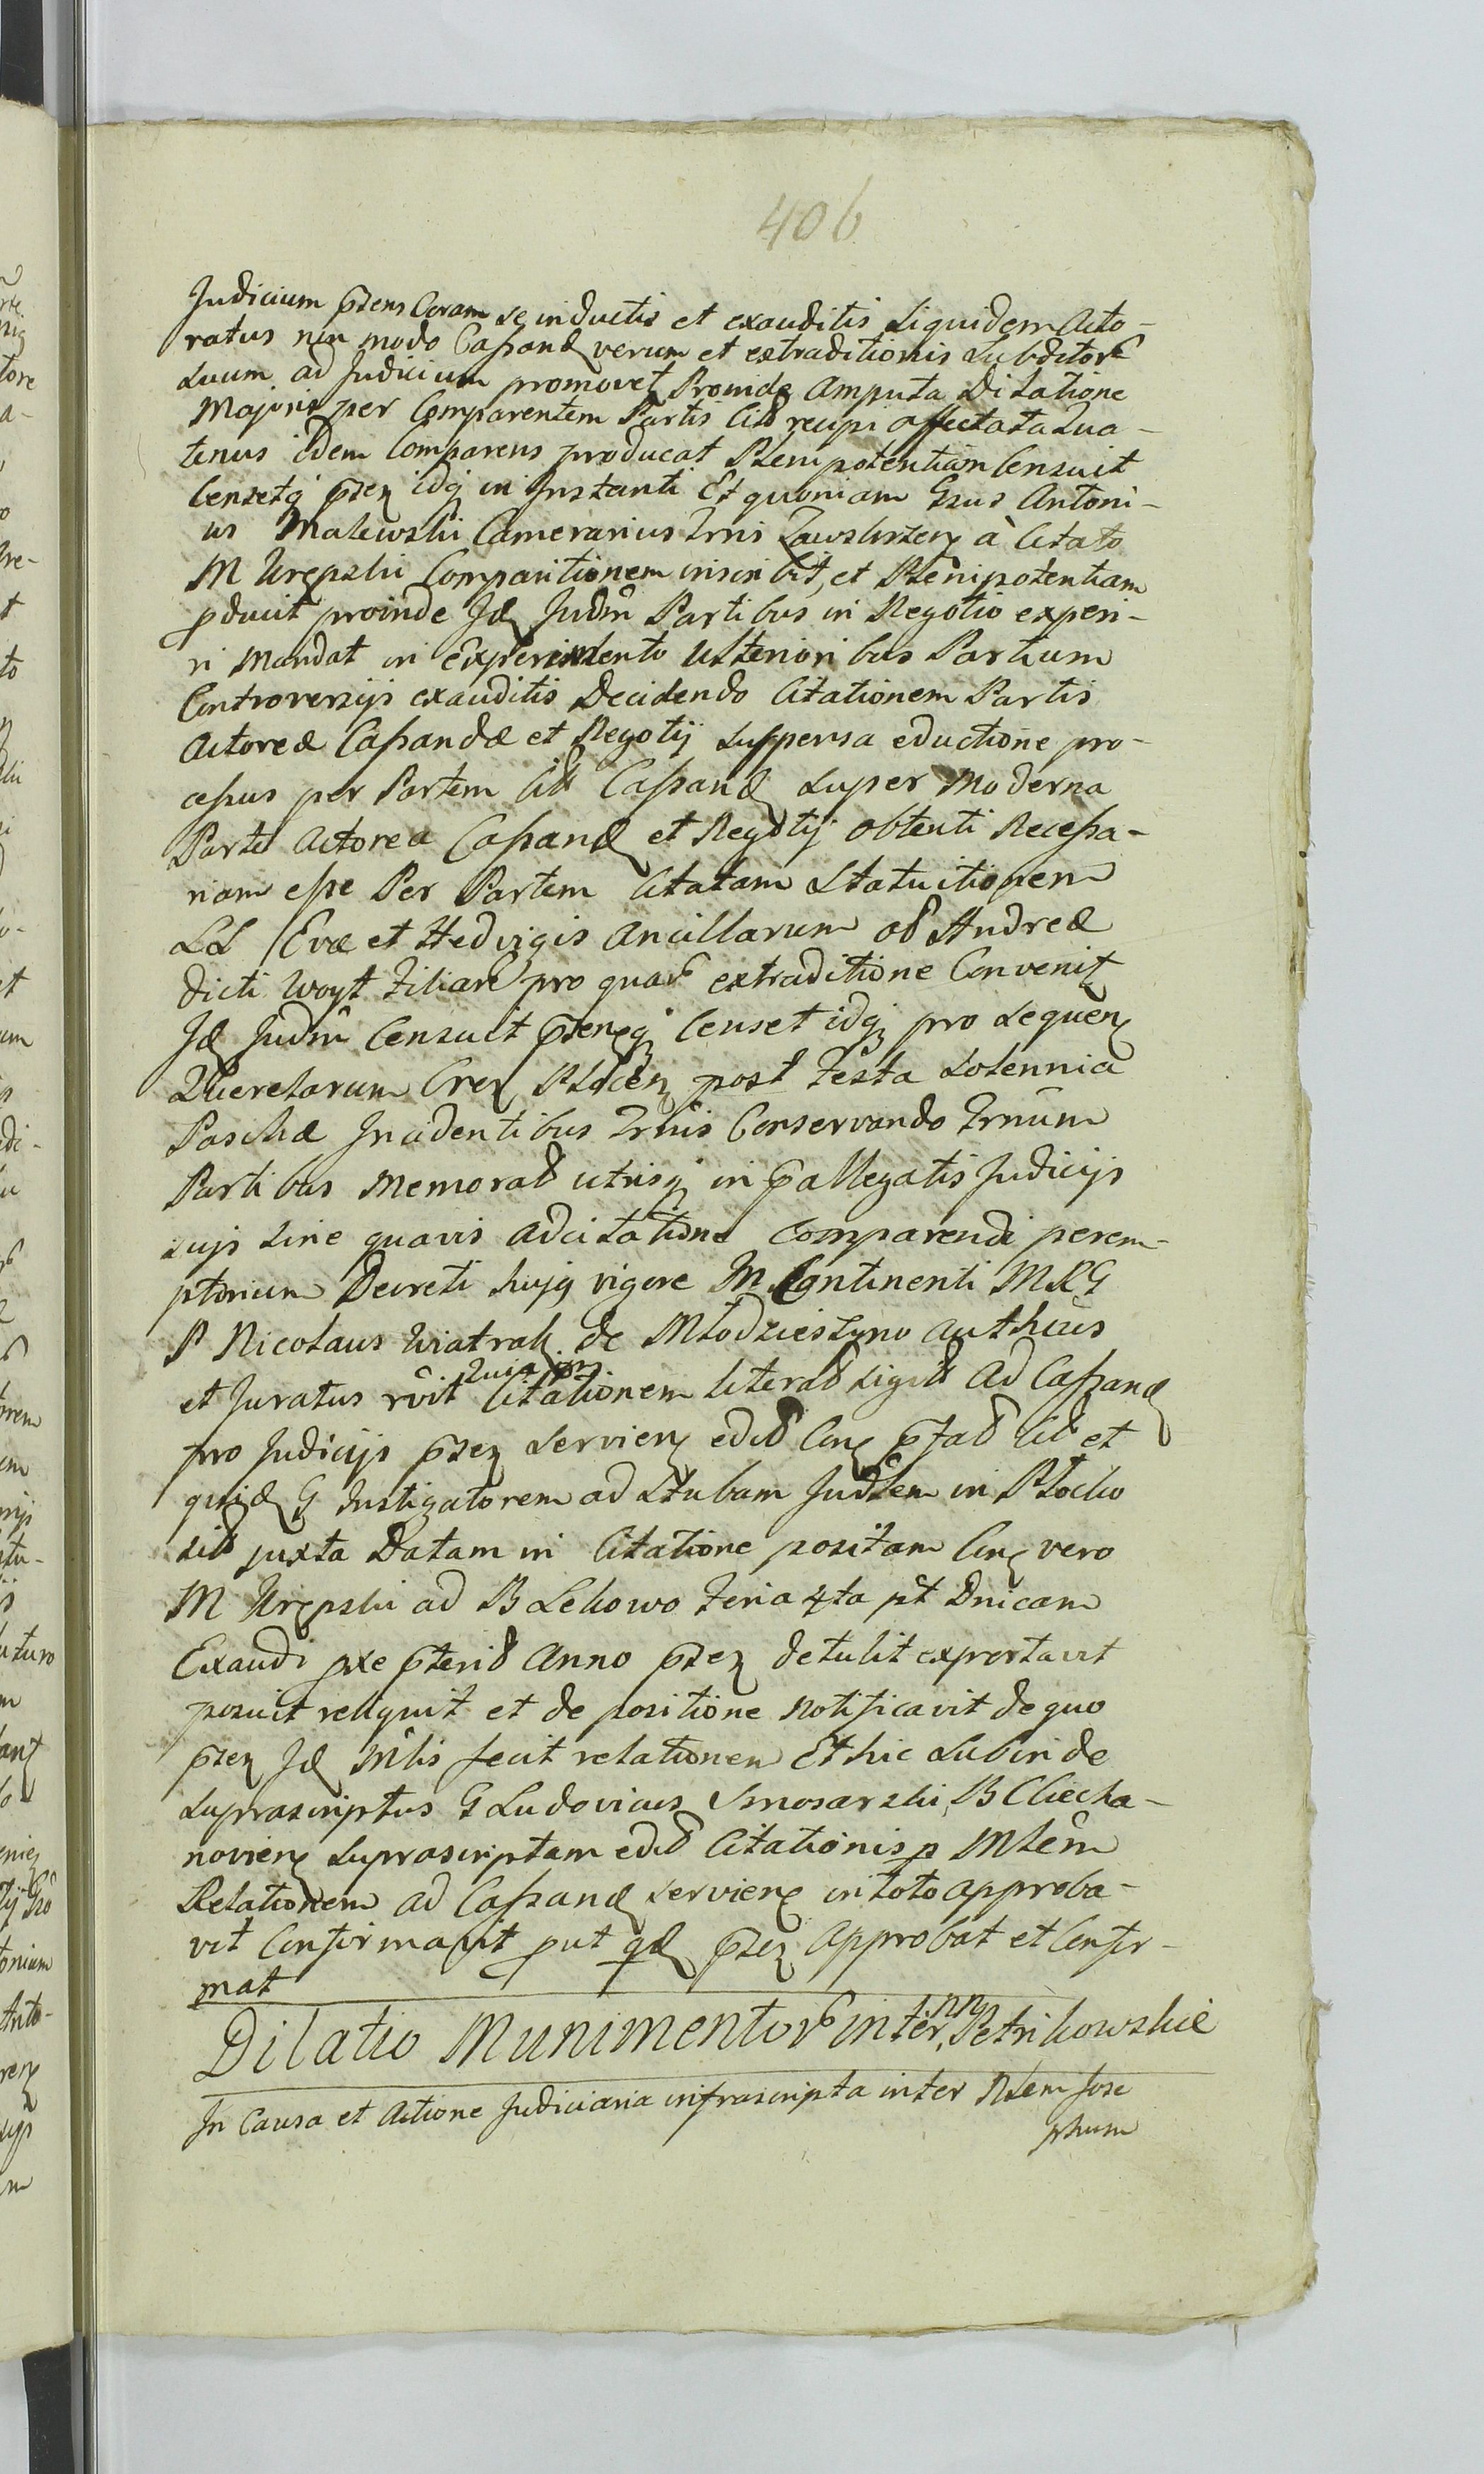 406
Judicium pñens Coram se inductis et exauditis Siquidem Acto-
ratus non modo Cassand verum et extraditionis Subditor
Suum ad Judicium promovet Proinde Amputa Dilatione
Majori per Comparentem Partis Citt recipi affectata Qua-
tenus idem Comparens producat Plenipotentiam Censuit
Censetq pñeñ idq in Instanti Et quoniam Gñus Antoni-
us Malewski Camerarius Trrïs Zawskrzeñ à Citato
M Krępski Comparitionem inscribit, et Plenipotentiam
pducit proinde Jd Judm Partibus in Negotio experi-
ri Mandat in Experimento Ulterioribus Partium
Controversijs exauditis Decidendo Citationem Partis
Actoreæ Cassandæ et Negotij suspensa eductione pro-
cessus per Partem Citt Cassand super Moderna
Parte Actorea Cassand et Negotij obtenti Necessa-
riam esse Per Partem Citatam Statuitionem
LL Evæ et Hedvigis Ancillarum ol Andreæ
dicti Woyt Filiar pro quar extraditione Convenit
Jd Judm Censuit pñenq Censet idq pro Sequeñ
Querelarum Creñ Plöceñ post Festa Solennia
Paschæ Incidentibus Trnis Conservando Trnum
Partibus Memorat utrisq in pallegatis Judicijs
sujs sine quavis Adcitatione Comparendi perem-
ptorium Decreti hujq vigore In Continenti MRG
P Nicolaus Wiatrak de Młodzieszyno Authcus
et Juratus rvit Quia Citationem literat sigitt Ad Cassand
pro Judicijs pñeñ Servieñ edit Coñ pfat Citt et
quid G Instigatorem ad Stubam Judlem in Płocko
sitt juxta Datam in Citatione positam Coñ vero
M Krępski ad B Lekowo Feria 4ta pt Dnicam
Exaudi pxe pterit Anno pñeñ detulit exportavit
posuit reliquit et de positione notificavit de quo
pñeñ Jd Mlis fecit relationem Et hic Subinde
Suprascriptus G Ludovicus Smosarski B Ciecha-
novieñ Suprascriptam edit Citationis p Mlem
Relationem ad Cassand Servieñ in toto approba-
vit Confirmavit put qd pñeñ Approbat et Confir-
mat
Dilatio Munimentor inter NN Petrikowskie
In Causa et Actione Judiciaria infrascripta inter Nlem Jose
phum